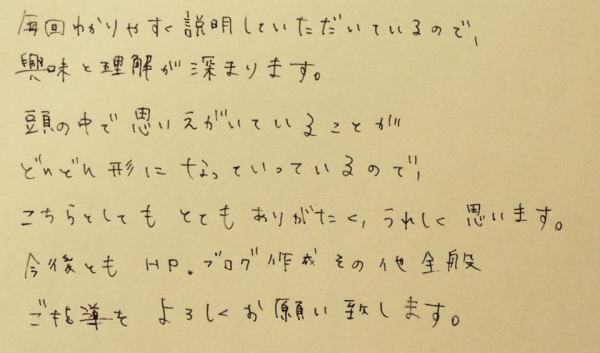 毎回わかりやすく説明していただいているので、
興味と理解が深まります。
頭の中で思いえがいていることが
どんどん形になっていっているので、
こちらとしてもとてもありがたく、うれしく思います。
今後ともHP.ブログ作成その他全般
ご指導をよろしくお願い致します。